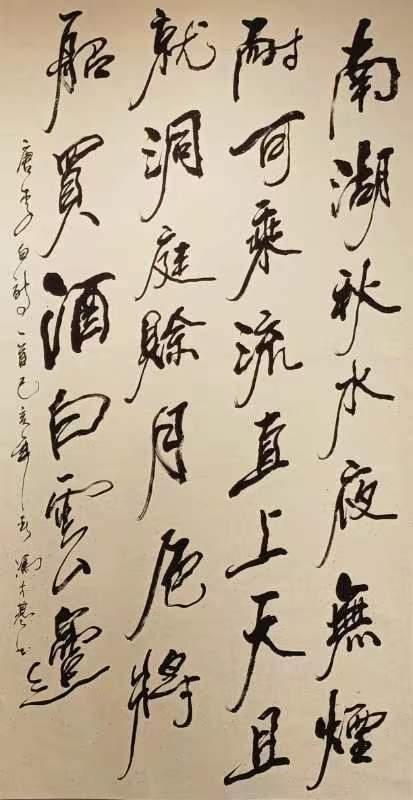 南湖秋水夜無煙
耐可乘流直上天且
就洞庭賒月色將
船買酒白雲邊
唐李白詩一首己亥年馮書